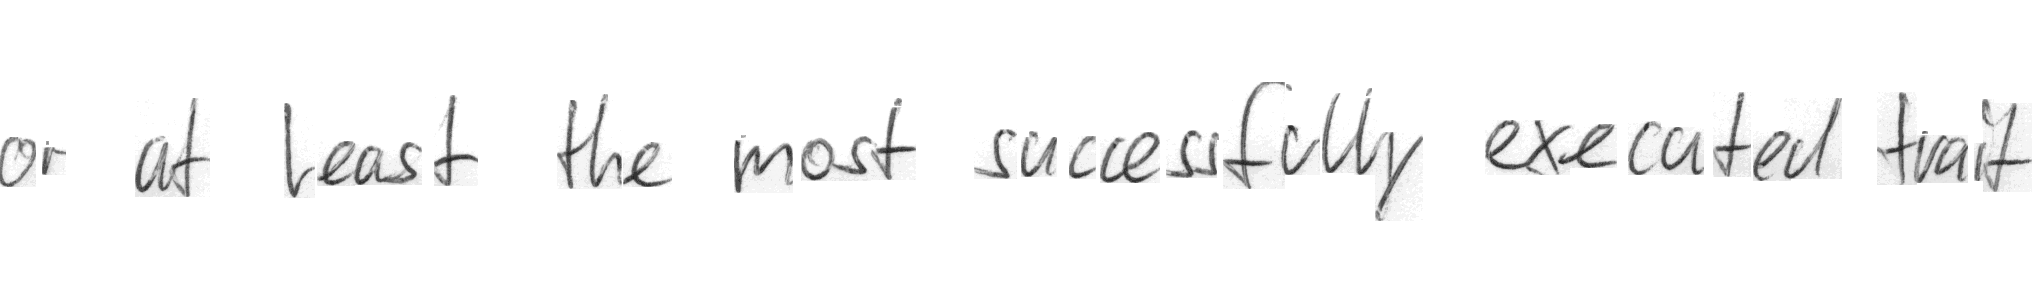 or at least the most successfully executed trait